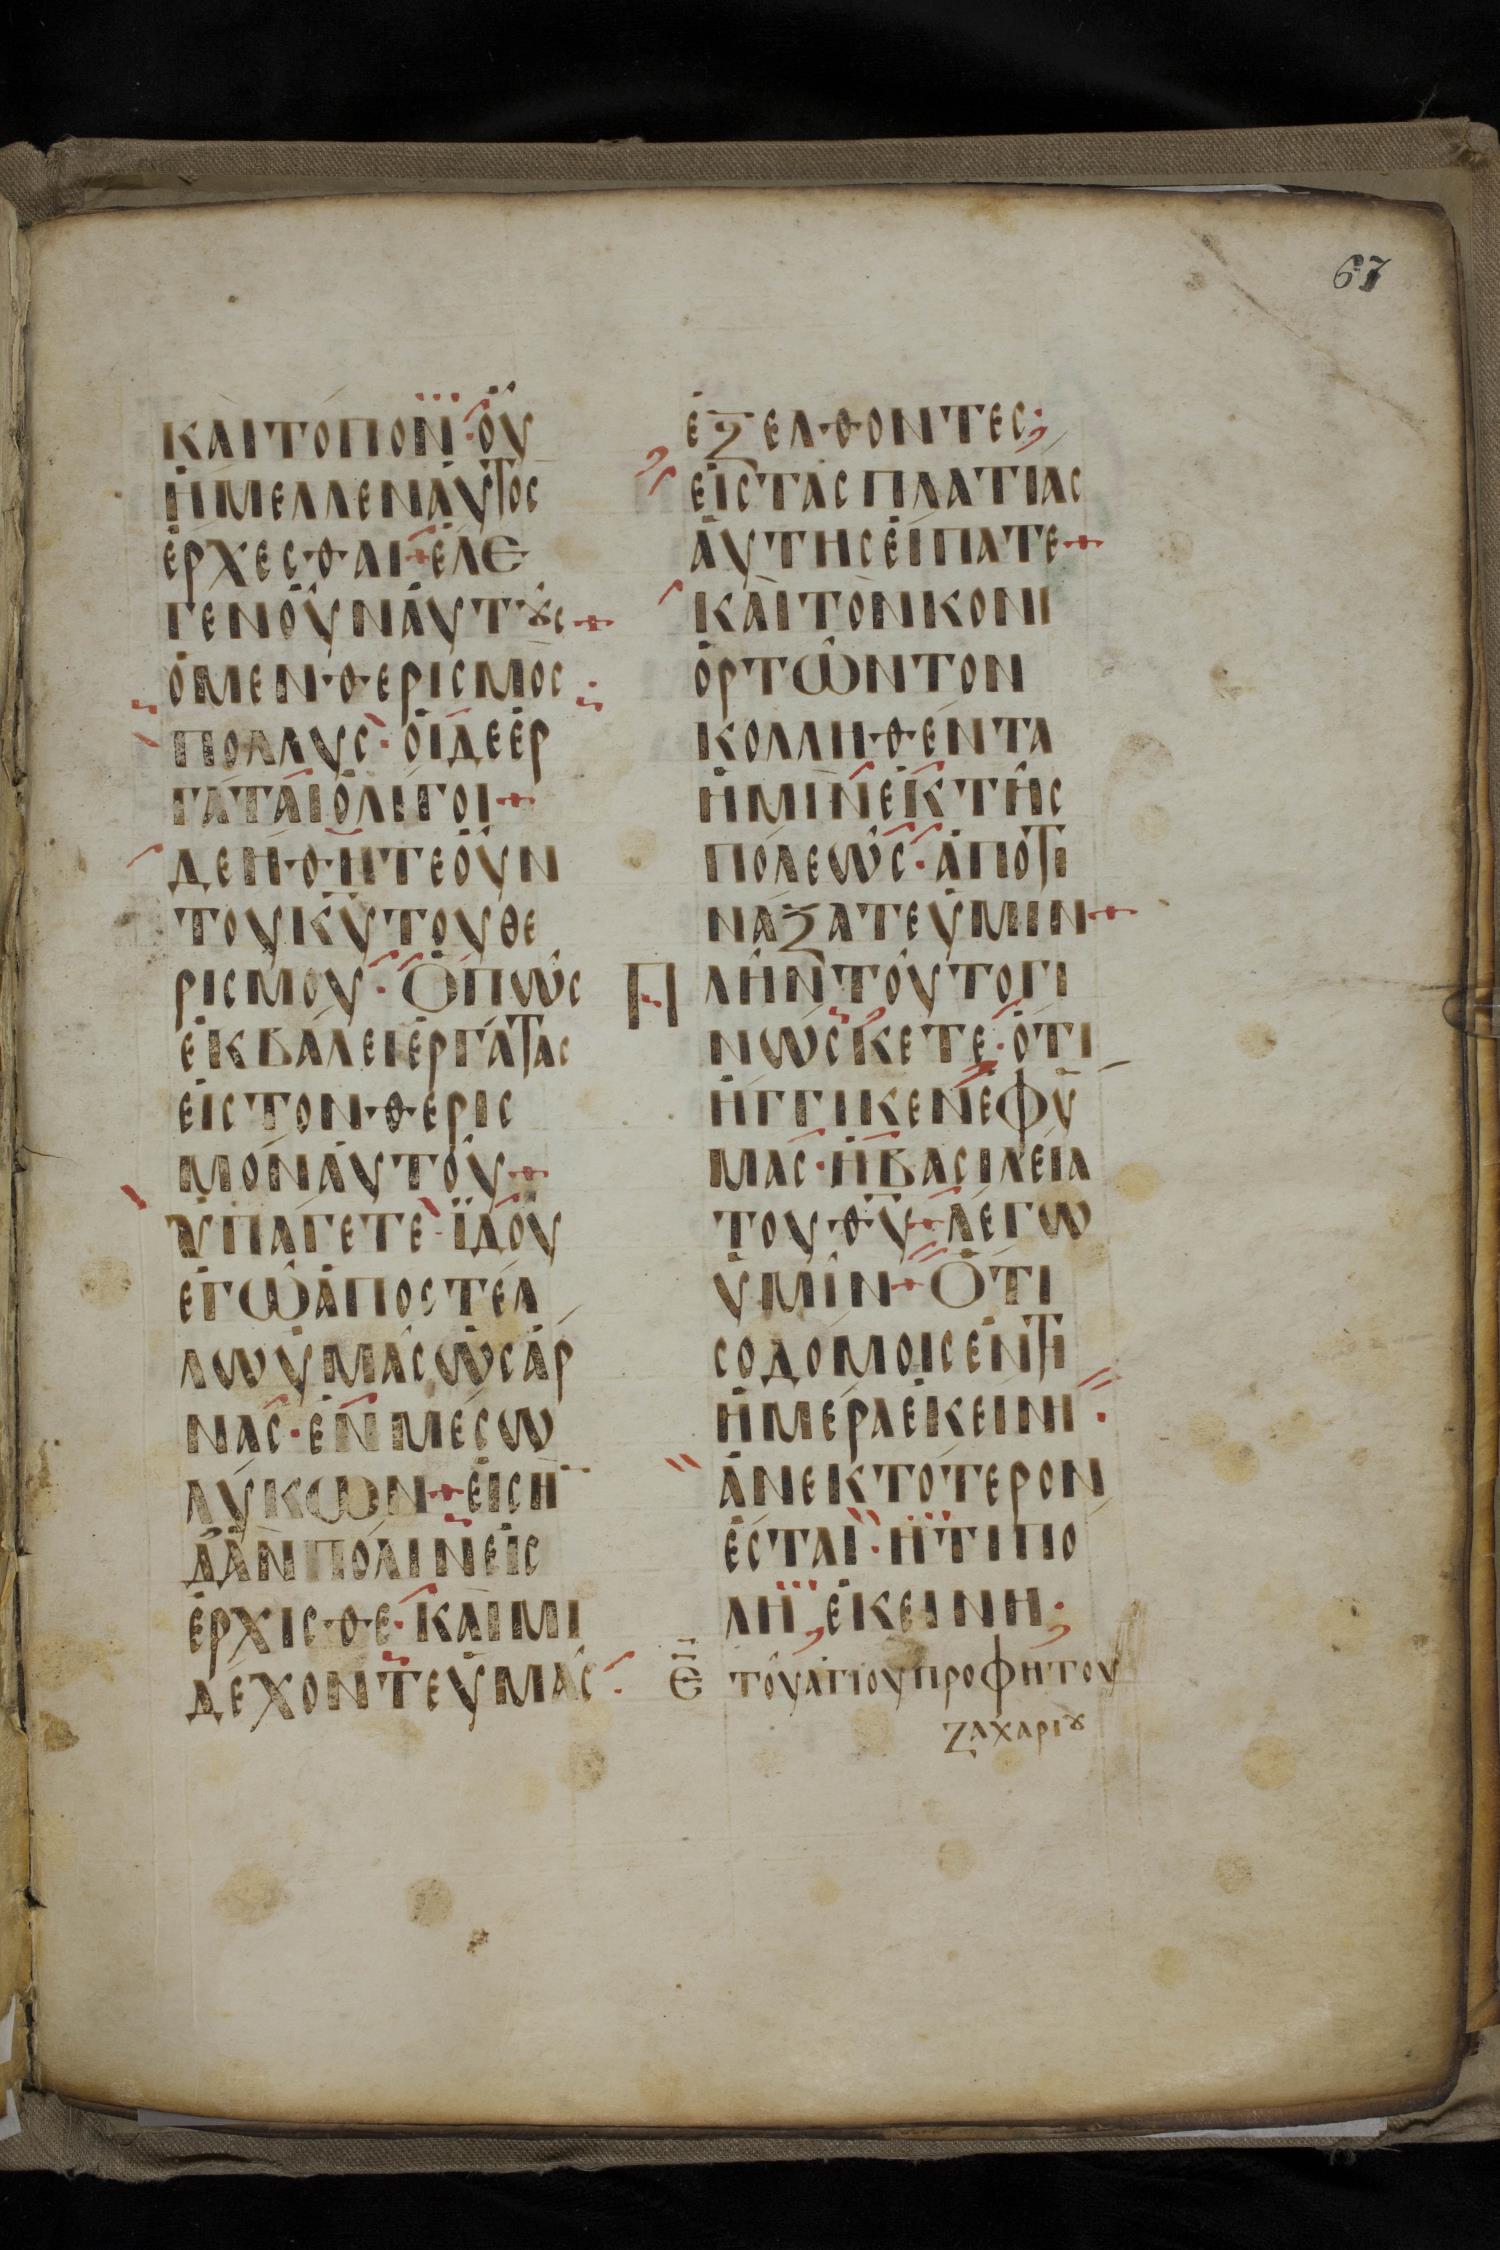 67
ΚΑΙ ΤΟΠΟΝ· ΟΥ
ΗΜΕΛΛΕΝ ΑΥΤΟC
ΕΡΧΕCΘΑΙ + ΕΛΕ
ΓΕΝ ΟΥΝ ΑΥΤȣC +
Ο ΜΕΝ ΘΕΡΙCΜΟC
ΠΟΛΛΥC· ΟΙ ΔΕ ΕΡ
ΓΑΤΑΙ ΟΛΙΓΟΙ +
ΔΕΗΘΗΤΕ ΟΥΝ
ΤΟΥ ΚΥ ΤΟΥ ΘΕ
ΡΙCΜΟΥ· ΟΠΩC
ΕΚΒΑΛΕΙ ΕΡΓΑΤΑC
ΕΙC ΤΟΝ ΘΕΡΙC
ΜΟΝ ΑΥΤΟΥ +
ΥΠΑΓΕΤΕ· ΪΔΟΥ
ΕΓΩ ΑΠΟCΤΕΛ
ΛΩ ΥΜΑC ΩC ΑΡ
ΝΑC· ΕΝ ΜΕCΩ
ΛΥΚΩΝ + ΕΙC Η
Δ ΑΝ ΠΟΛΙΝ ΕΙC
ΕΡΧΙCΘΕ· ΚΑΙ ΜΙ
ΔΕΧΟΝΤΕ ΥΜΑC·
ΕΞΕΛΘΟΝΤΕC·
ΕΙC ΤΑC ΠΛΑΤΙΑC
ΑΥΤΗC ΕΙΠΑΤΕ +
ΚΑΙ ΤΟΝ ΚΟΝΙ
ΟΡΤΩΝ ΤΟΝ
ΚΟΛΛΗΘΕΝΤΑ
ΗΜΙΝ ΕΚ ΤΗC
ΠΟΛΕΩC· ΑΠΟΤΙ
ΝΑΞΑΤΕ ΥΜΙΝ +
ΠΛΗΝ ΤΟΥΤΟ ΓΙ
ΝΩCΚΕΤΕ· ΟΤΙ
ΗΓΓΙΚΕΝ ΕΦ Υ
ΜΑC· Η ΒΑCΙΛΕΙΑ
ΤΟΥ ΘΥ + ΛΕΓΩ
ΥΜΙΝ + ΟΤΙ
CΟΔΟΜΟΙC ΕΝ ΤΙ
ΗΜΕΡΑ ΕΚΕΙΝΗ·
ΑΝΕΚΤΟΤΕΡΟΝ
ΕCΤΑΙ· Η ΤΙ ΠΟ
ΛΗ ΕΚΕΙΝΗ·
Ε ΤΟΥ ΑΓΙΟΥ ΠΡΟΦΗΤΟΥ
ΖΑΧΑΡΙȣ